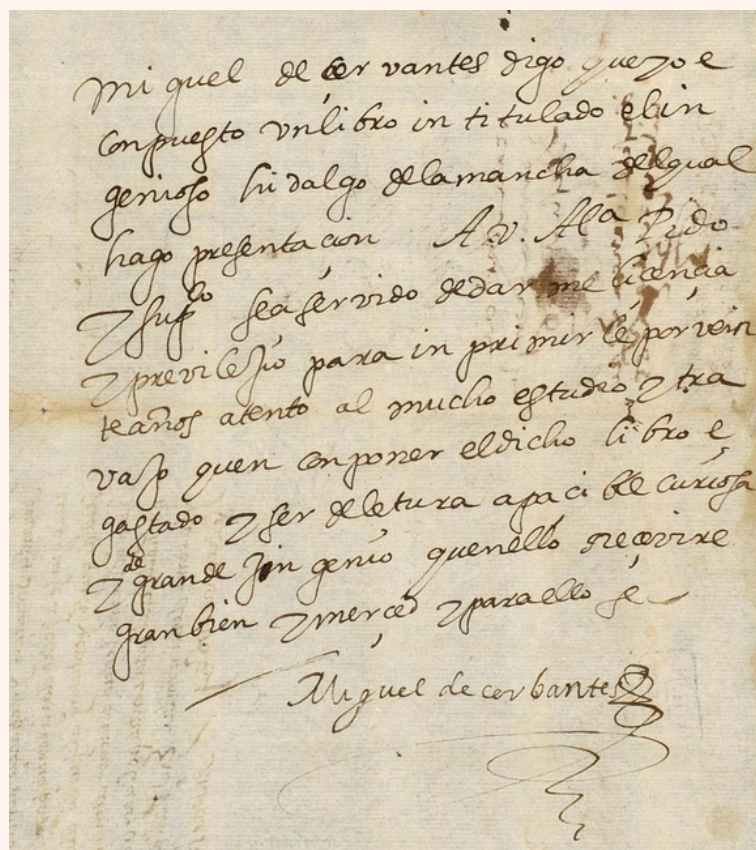 miguel de cervantes digo que yo e
conpuesto un libro intitulado el in
genioso hidalgo de la mancha del qual
hago presentacion A v. Alª Pido
y supco sea servido de dar me licencia
y previlejio para inprimirle por vein
te años atento al mucho estudio y tra
vajo quen conponer el dicho libro e
gastado y ser de letura apacible curiosa
y de grande jingenio quenello rrecevire
gran bien y merced y para ello
Miguel de cerbantes